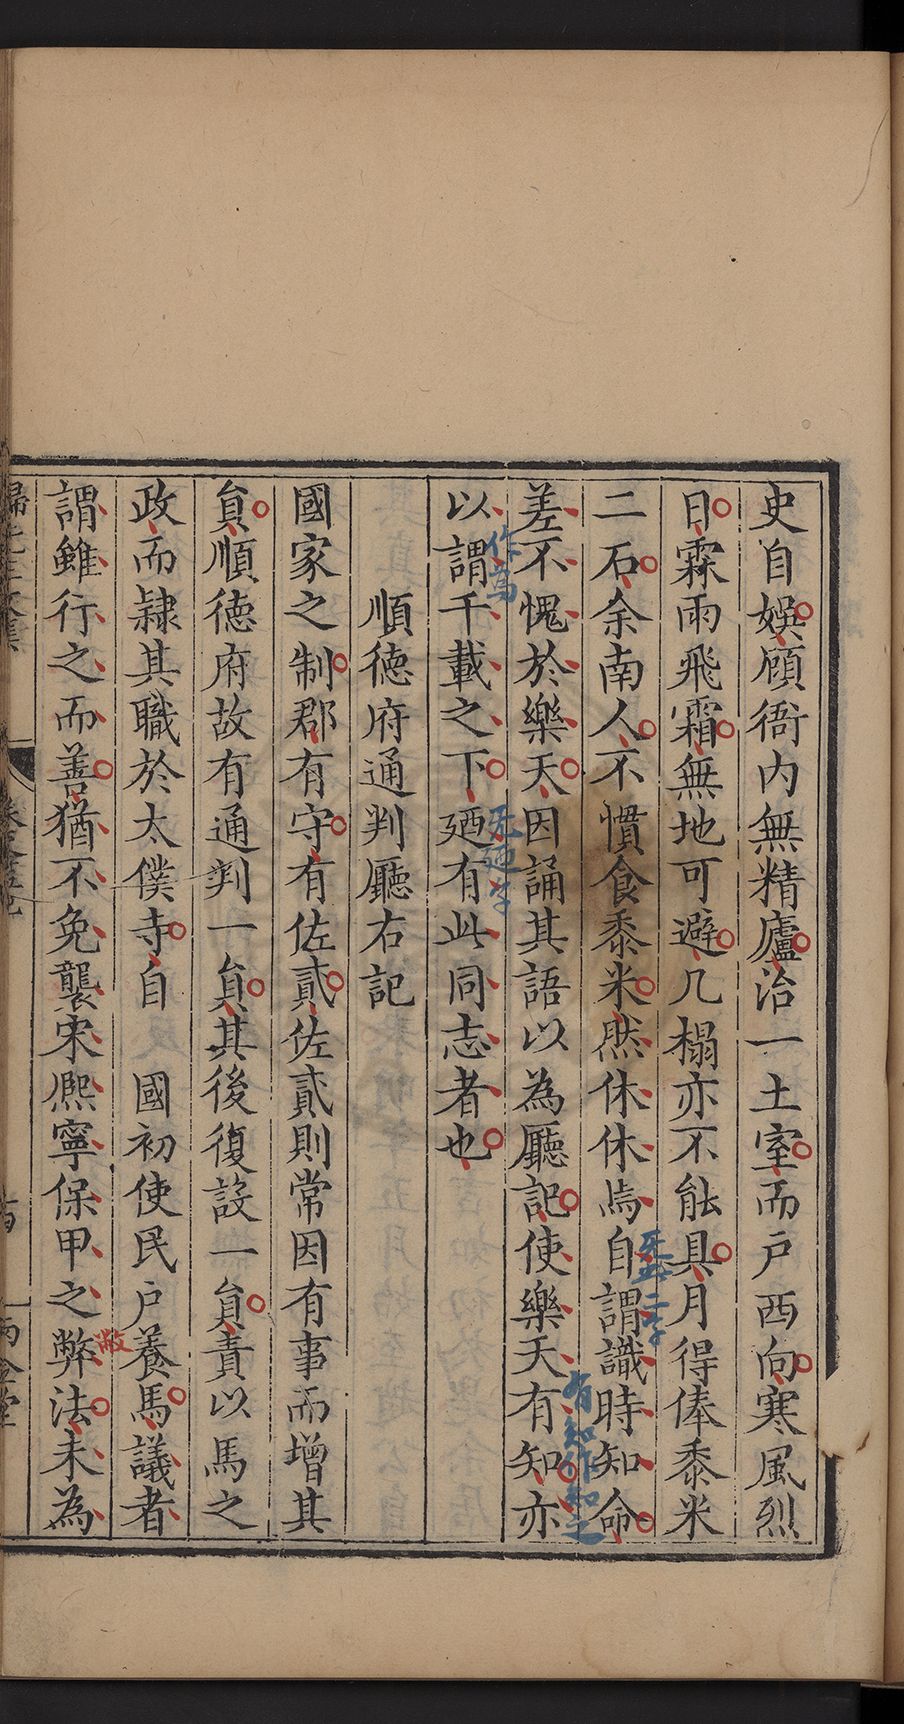 史自娛顧衙内無精廬治一土室而戶西向寒風烈
日霖雨飛霜無地可避几榻亦不能具月得俸黍米
二石余南人不慣食黍米然休休焉自謂識時知命
差不愧於樂天因誦其語以為廳記使樂天有知亦
以謂千載之下廼有此同志者也
順德府通判廳右記
國家之制郡有守有佐貳佐貳則常因有事而增其
貟順德府故有通判一貟其後復設一貟責以馬之
政而隷其職於太僕寺自　國初使民戶養馬議者
謂雖行之而善猶不免襲宋熈寧保甲之弊法未為
作為
无廼字
无此二字
有知作知之
敝